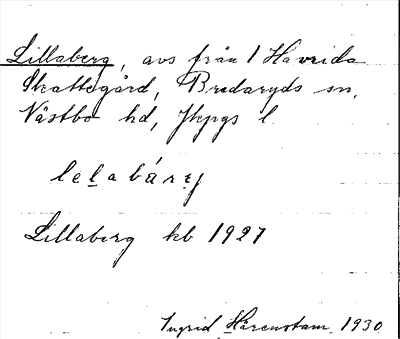 Lillaberg, avs från 1 Havrida
Skattegård, Bredaryds sn,
Västbo hd, Jkpgs l.
Lillaberg kb 1927
Ingrid Härenstam 1930